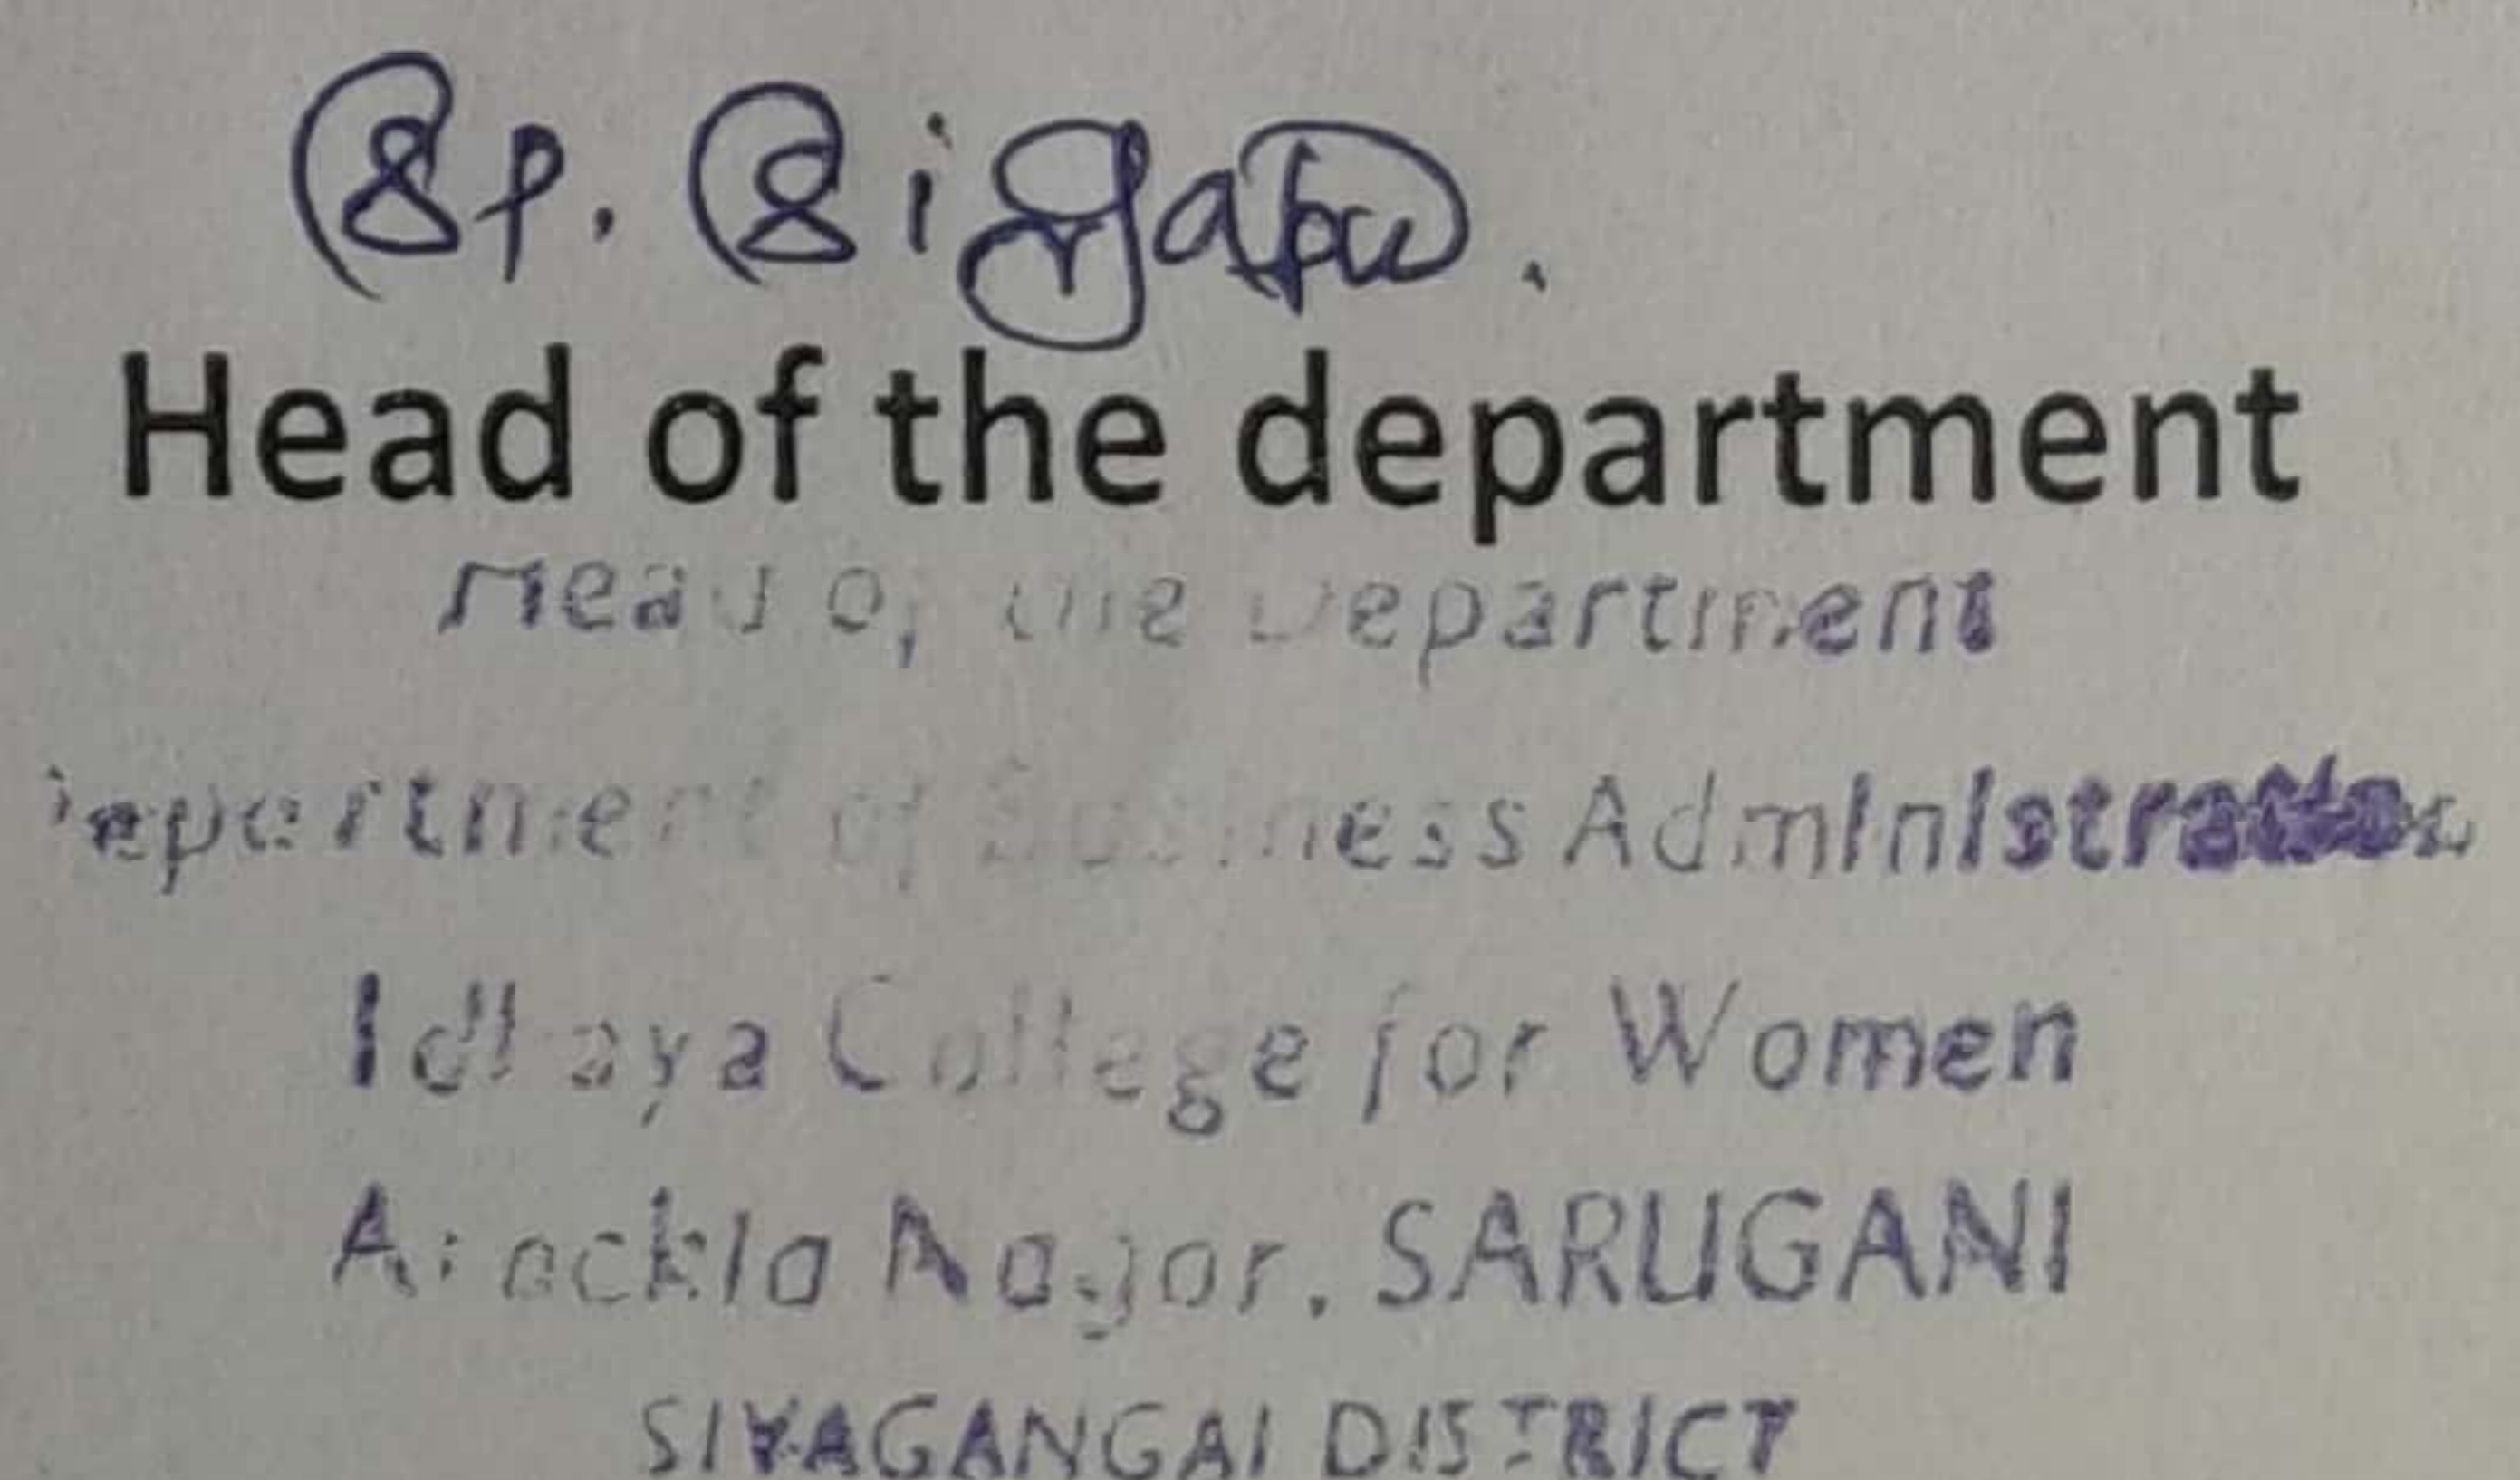 Head of the department
Head of the Department
Department of Business Administration
Idhaya College for Women
Arockia Nagar, SARUGANI
SIVAGANGAI DISTRICT